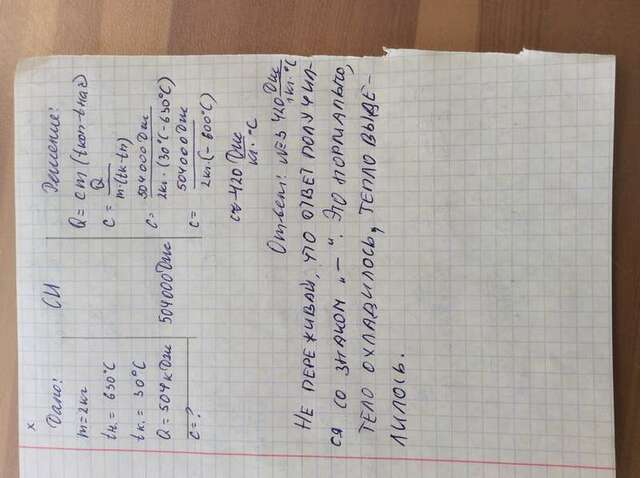 x
Дано:
m=2кг
tн.= 630°C
tк.= 30°C
Q = 504 кДж
c=?
СИ
504000Дж
Решение:
Q = cm (tкон-tнач)
c = Q / m·(tк-tн)
c= 504000Дж / 2кг·(30°C-630°C)
c= 504000Дж / 2кг·(-600°C)
c=-420 Дж / кг·°C
Ответ: №3 420 Дж / 1кг·°C
НЕ ПЕРЕЖИВАЙ, ЧТО ОТВЕТ ПОЛУЧИЛ-
СЯ СО ЗНАКОМ „ — “. ЭТО НОРМАЛЬНО,
ТЕЛО ОХЛАДИЛОСЬ, ТЕПЛО ВЫДЕ-
ЛИЛОСЬ.